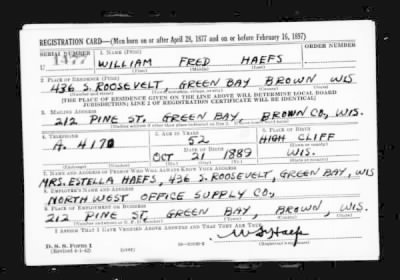 REGISTRATION CARD—(Men born on or after April 28, 1877 and on or before February 16, 1897)
SERIAL NUMBER 1. NAME (Print) ORDER NUMBER
U 1477 WILLIAM FRED HAEFS
(First) (Middle) (Last)
2. PLACE OF RESIDENCE (Print)
436 S. ROOSEVELT GREEN BAY BROWN WIS
(Number and street) (Town, township, village, or city) (County) (State)
[THE PLACE OF RESIDENCE GIVEN ON THE LINE ABOVE WILL DETERMINE LOCAL BOARD
JURISDICTION; LINE 2 OF REGISTRATION CERTIFICATE WILL BE IDENTICAL]
3. MAILING ADDRESS
212 PINE ST. GREEN BAY, BROWN CO., WIS.
4. TELEPHONE 5. AGE IN YEARS 6. PLACE OF BIRTH
A. 4170 52 HIGH CLIFF
DATE OF BIRTH
OCT 21 1889 WIS.
7. NAME AND ADDRESS OF PERSON WHO WILL ALWAYS KNOW YOUR ADDRESS
MRS. ESTELLA HAEFS, 436 S. ROOSEVELT, GREEN BAY, WIS
8. EMPLOYER'S NAME AND ADDRESS
NORTH WEST OFFICE SUPPLY CO.,
9. PLACE OF EMPLOYMENT OR BUSINESS
212 PINE ST GREEN BAY, BROWN, WIS.
(Number and street or R. F. D. number) (Town) (County) (State)
I AFFIRM THAT I HAVE VERIFIED ABOVE ANSWERS AND THAT THEY ARE TRUE.
D. S. S. Form 1
(Revised 4-1-42) (over)